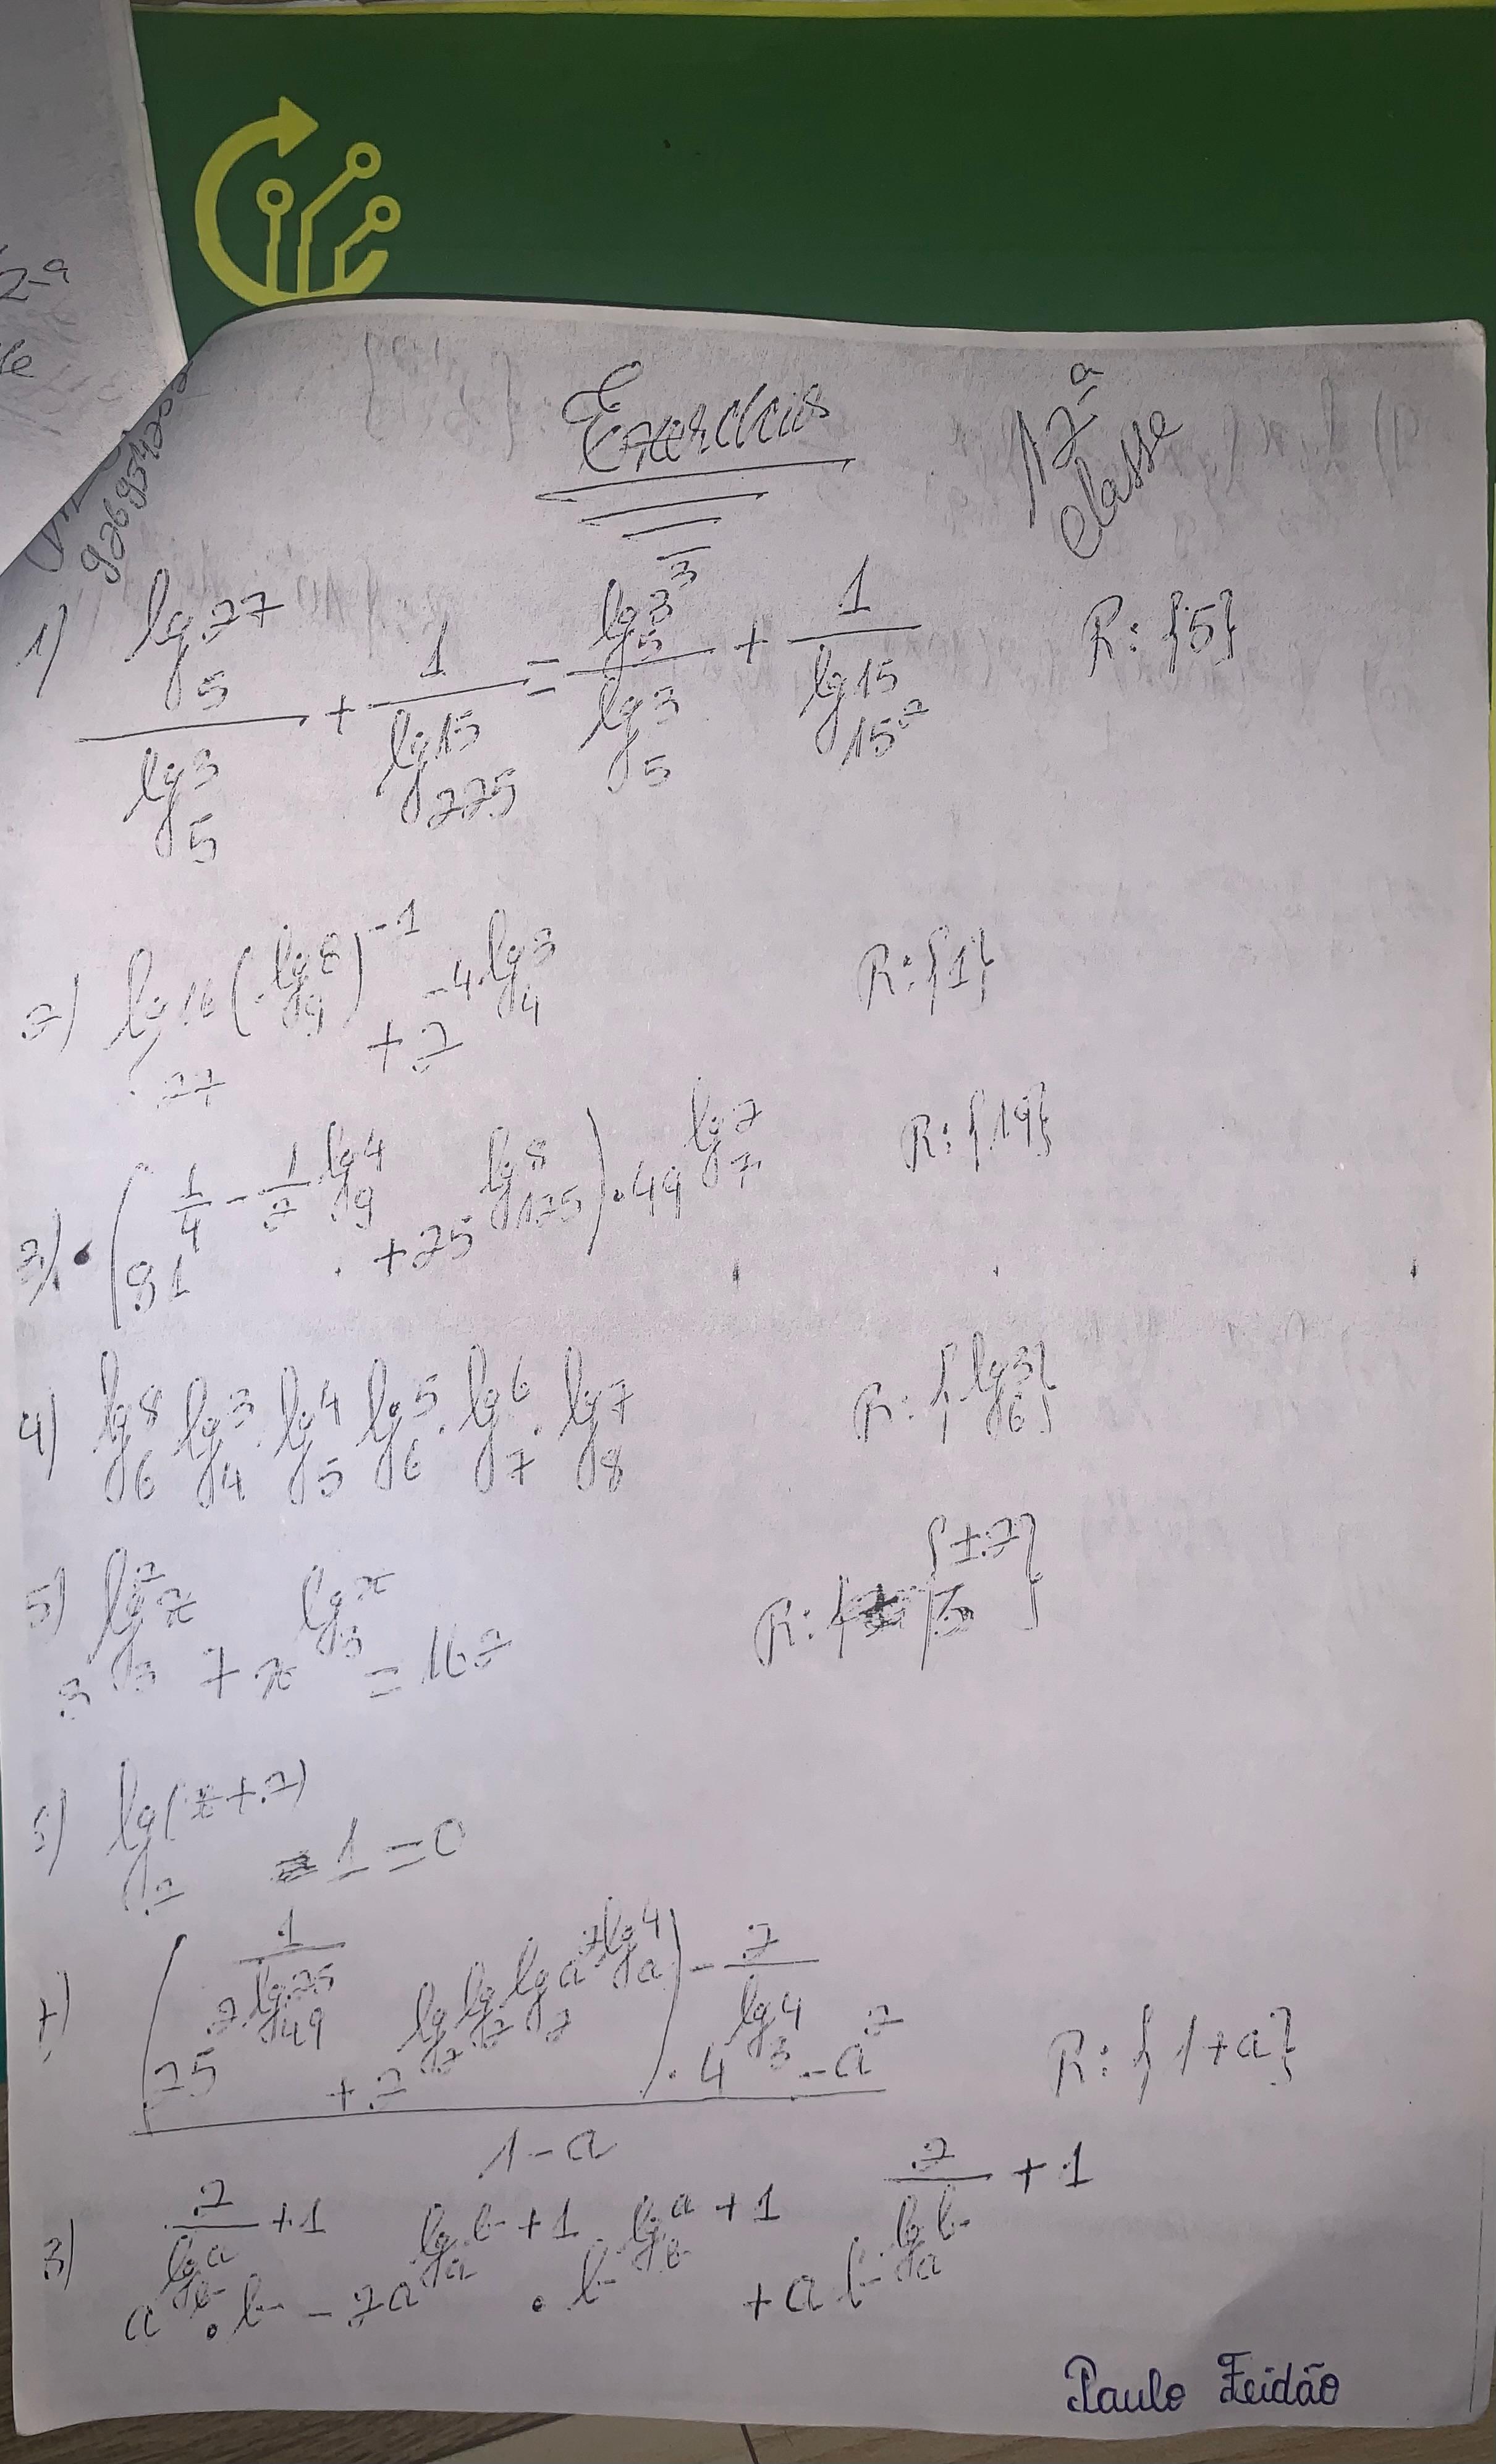 2-a
Exercícius
12-ª
classe
926954202
1) lg₅27/lg₅3 + 1/lg₂₂₅15 = lg₅3³/lg₅3 + 1/lg₁₅²15 R: {5}
2) lg₂₇16 (lg₉8)^-1 + 2^(-4lg₄3) R: {1}
3) (81^(1/4 - 1/2 lg₉4) + 25^(lg₁₂₅8)) . 49^(lg₇2) R: {19}
4) lg₆8 lg₄3 . lg₅4 lg₆5 . lg₇6 . lg₈7 R: {lg₆3}
5) 3^(lg₃²x) + x^(lg₃x) = 162 R: {3^±2}
lg₂(x+2) - 1 = 0
7) ((25^(1/(2lg₄₉25)) + 2^(lg₂lg₂lg₂a^(2lgₐ4))) . 4^(-2/lg₃4) - a²)/(1-a) R: {1+a}
a^(2/(lg_b a) + 1) . b - 2a^(lgₐb + 1) . b^(lg_b a + 1) + ab^(2/(lgₐb) + 1)
Paulo Feidão